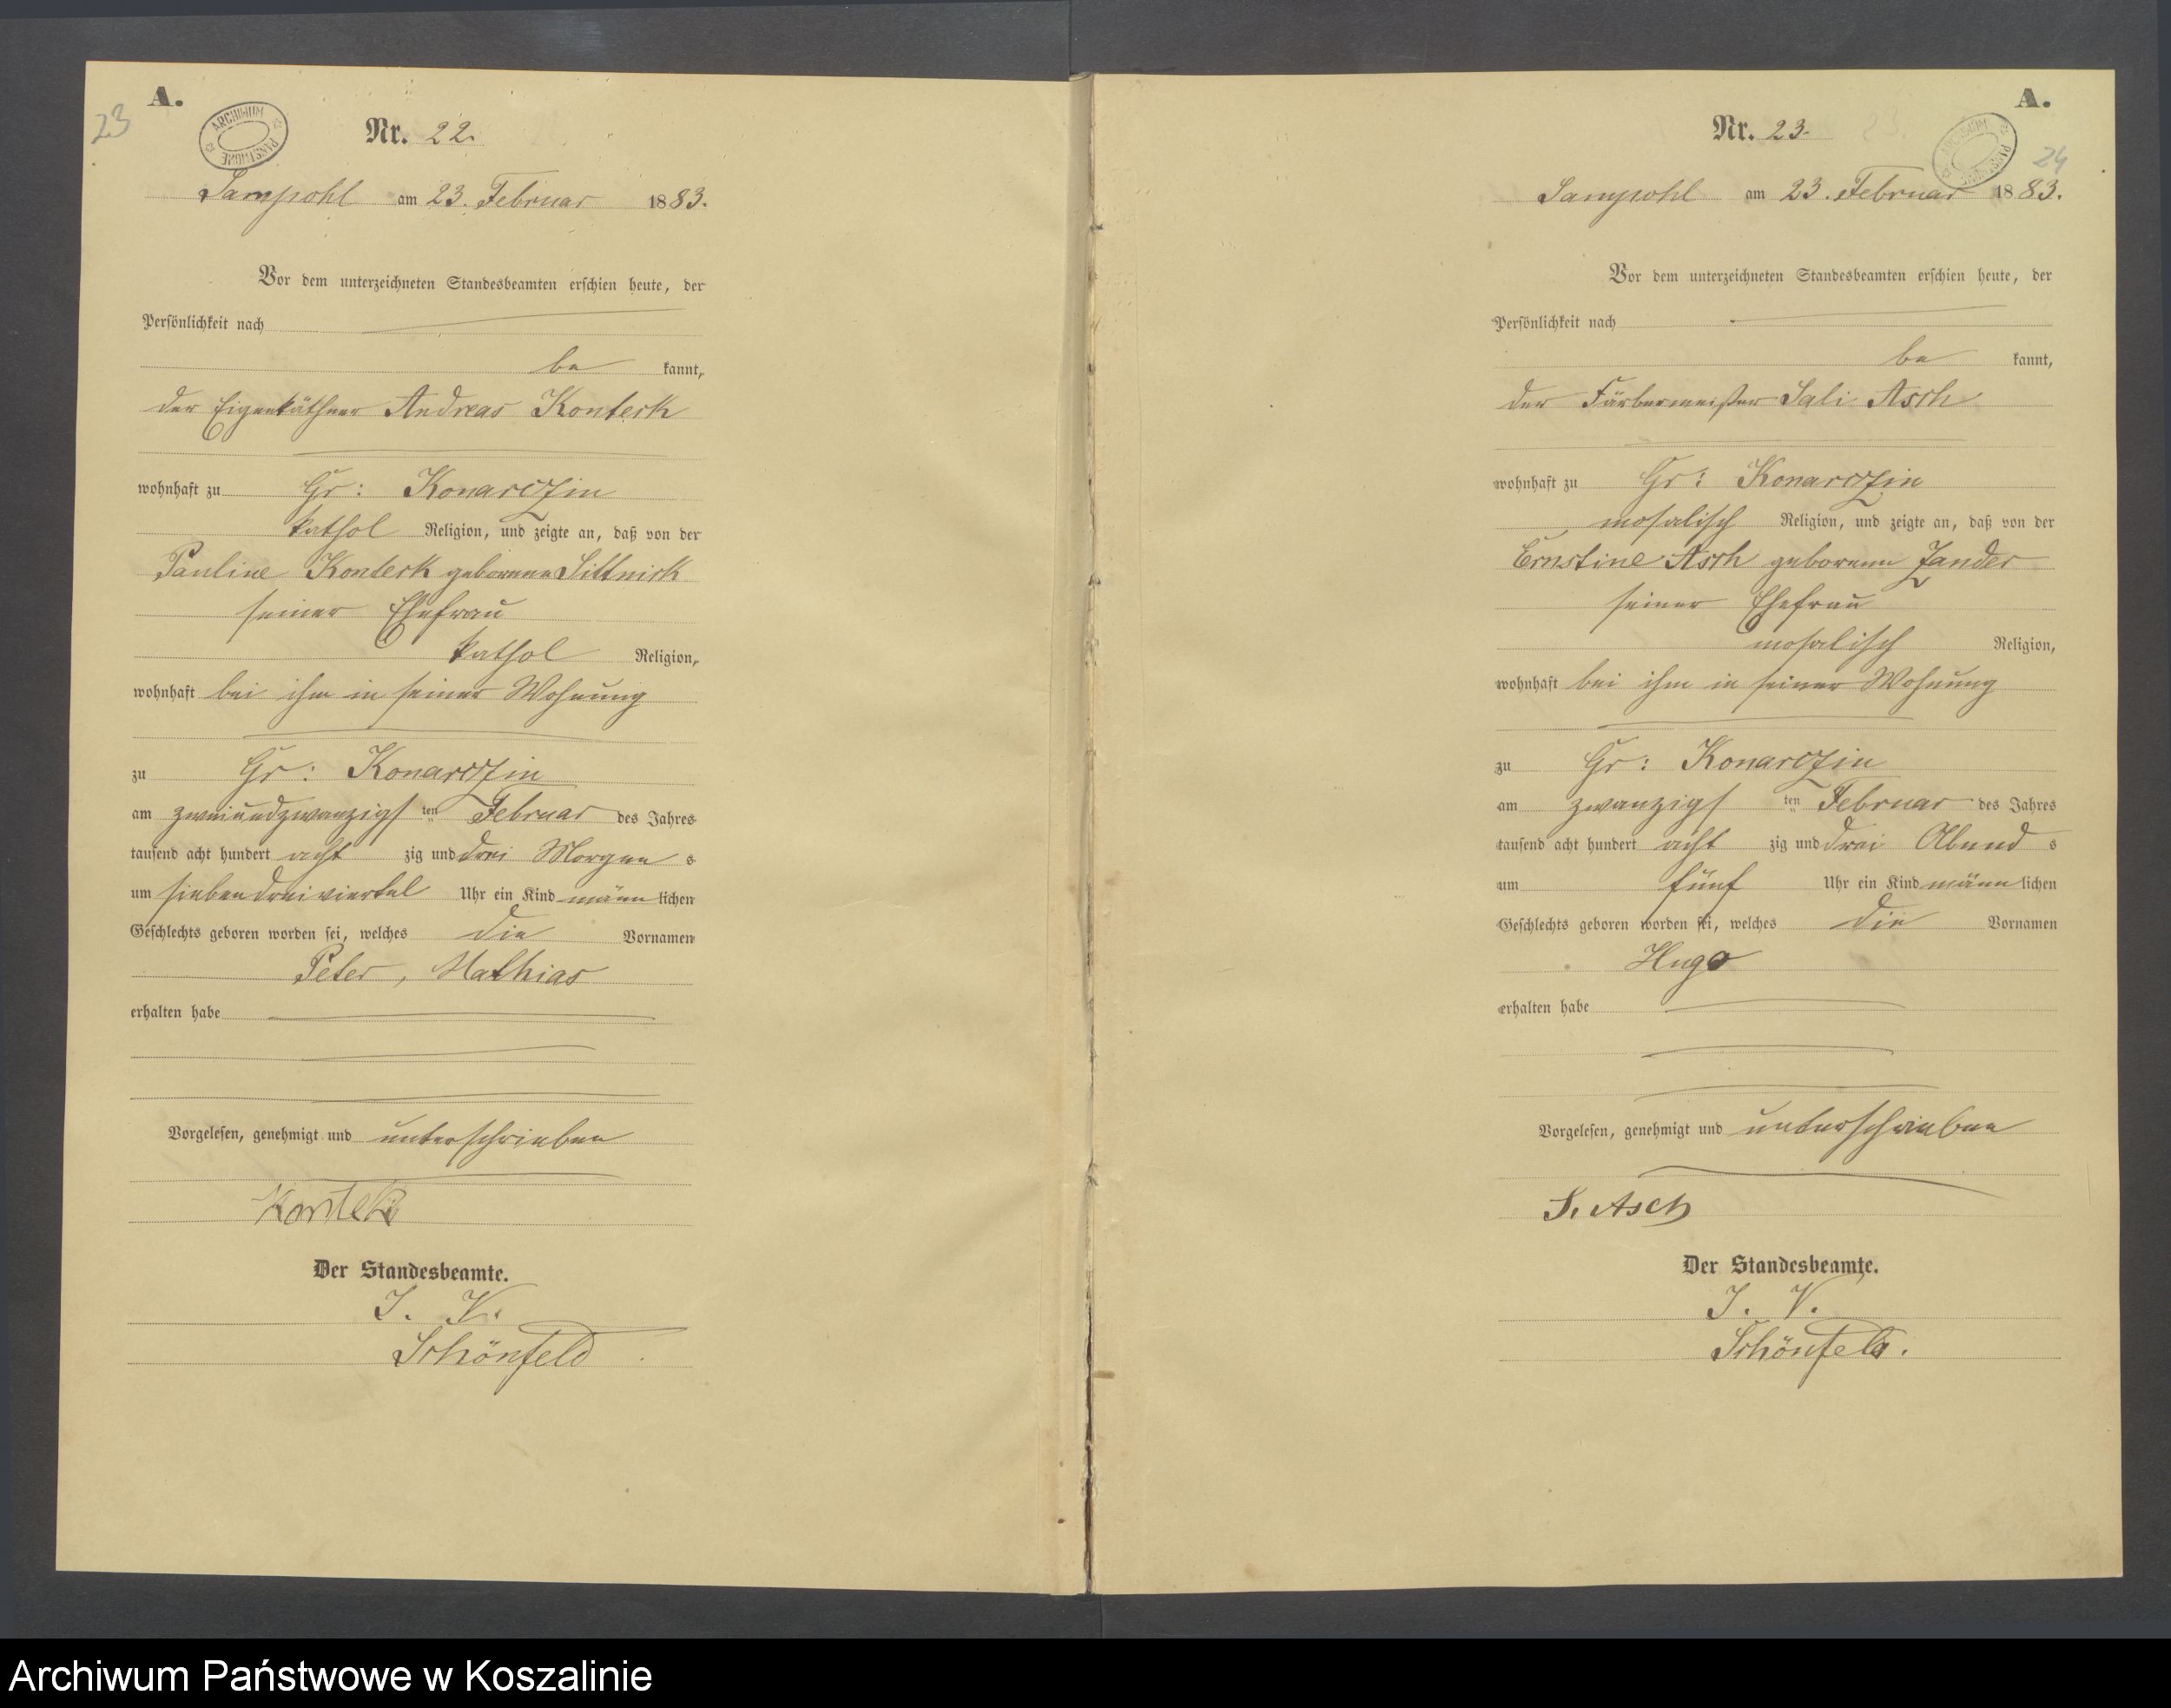 23
A.
ARCHIWUM PAŃSTWOWE
Nr. 22.
Sampohl am 23. Februar 1883.
Vor dem unterzeichneten Standesbeamten erschien heute, der
Persönlichkeit nach
be kannt,
der Eigenkäthner Andreas Konteck
wohnhaft zu Gr: Konarczin
kathol Religion, und zeigte an, daß von der
Pauline Konteck geborene Littnick
seiner Ehefrau
kathol Religion,
wohnhaft bei ihm in seiner Wohnung
zu Gr: Konarczin
am zweiundzwanzigs ten Februar des Jahres
tausend acht hundert acht zig und drei Morgen s
um sieben dreiviertel Uhr ein Kind männ lichen
Geschlechts geboren worden sei, welches die Vornamen
Peter, Mathias
erhalten habe
Vorgelesen, genehmigt und unterschrieben
Kontek
Der Standesbeamte.
J. V.
Schönfeld
A.
24
ARCHIWUM PAŃSTWOWE
Nr. 23.
Sampohl am 23. Februar 1883.
Vor dem unterzeichneten Standesbeamten erschien heute, der
Persönlichkeit nach
be kannt,
der Färbermeister Sali Asch
wohnhaft zu Gr: Konarczin
mosaisch Religion, und zeigte an, daß von der
Ernstine Asch geborene Zander
seiner Ehefrau
mosaisch Religion,
wohnhaft bei ihm in seiner Wohnung
zu Gr: Konarczin
am zwanzigs ten Februar des Jahres
tausend acht hundert acht zig und drei Abend s
um fünf Uhr ein Kind männ lichen
Geschlechts geboren worden sei, welches die Vornamen
Hugo
erhalten habe
Vorgelesen, genehmigt und unterschrieben
S. Asch
Der Standesbeamte.
J. V.
Schönfeld.
Archiwum Państwowe w Koszalinie